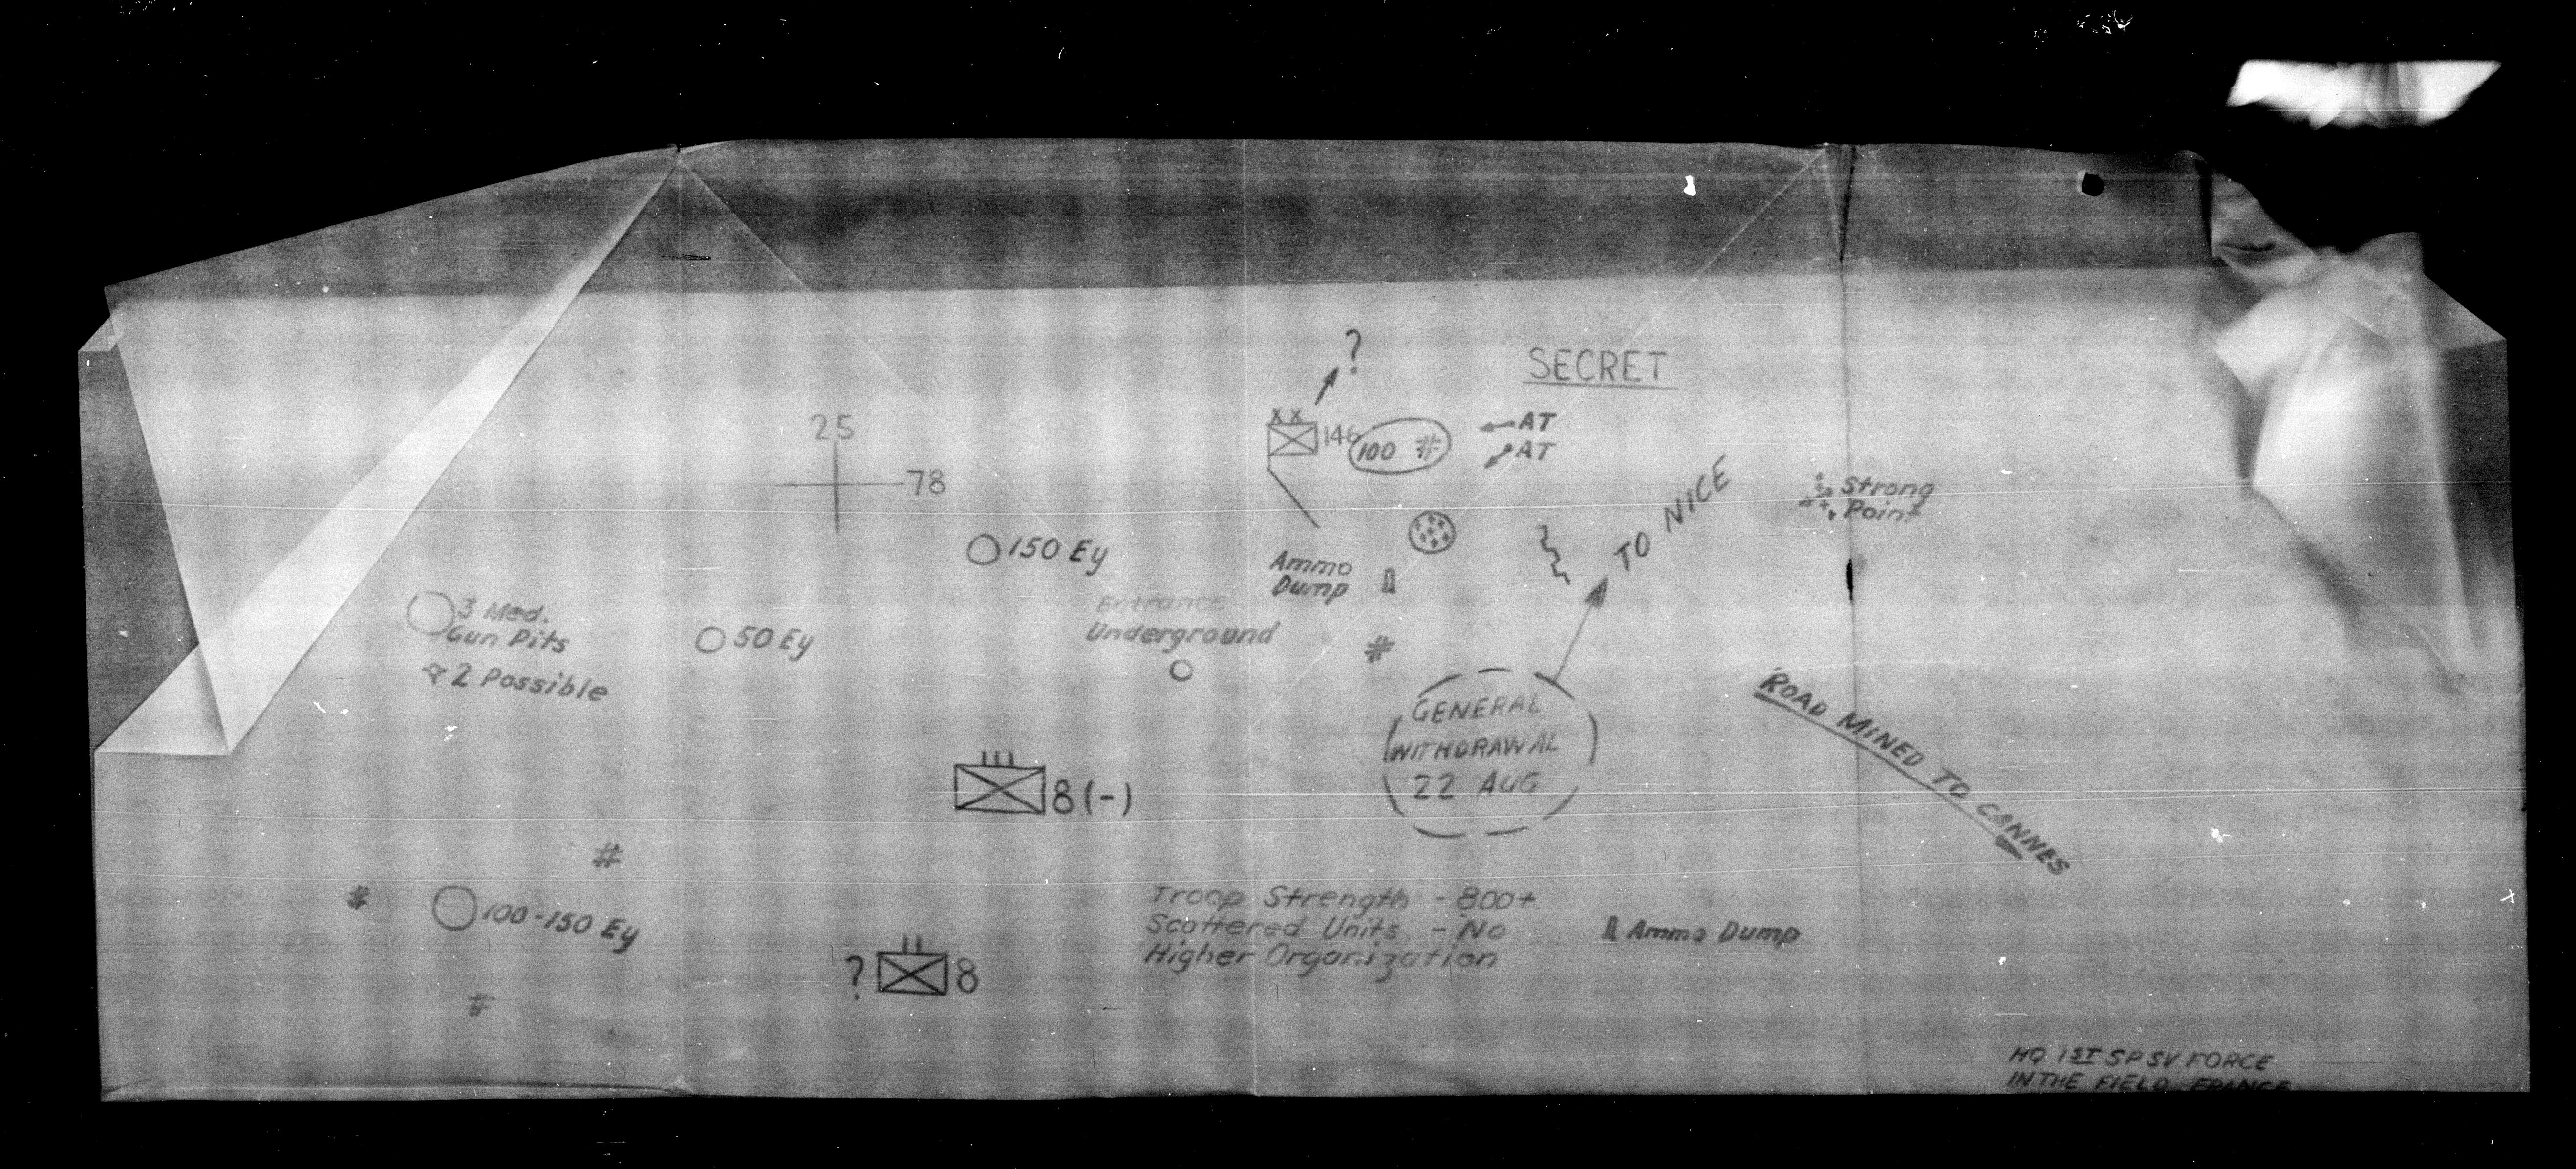 ?
SECRET
XX
146
100 #
AT
AT
25
78
TO NICE
Strong
Point
150 Ey
Ammo
Dump
Entrance
Underground
3 Med.
Gun Pits
2 Possible
50 Ey
#
GENERAL
WITHDRAWAL
22 AUG
ROAD MINED TO CANNES
III
8(-)
#
#
100-150 Ey
#
Troop Strength - 800+
Scattered Units - No
Higher Organization
Ammo Dump
II
? 8
HQ 1ST SP SV FORCE
IN THE FIELD FRANCE